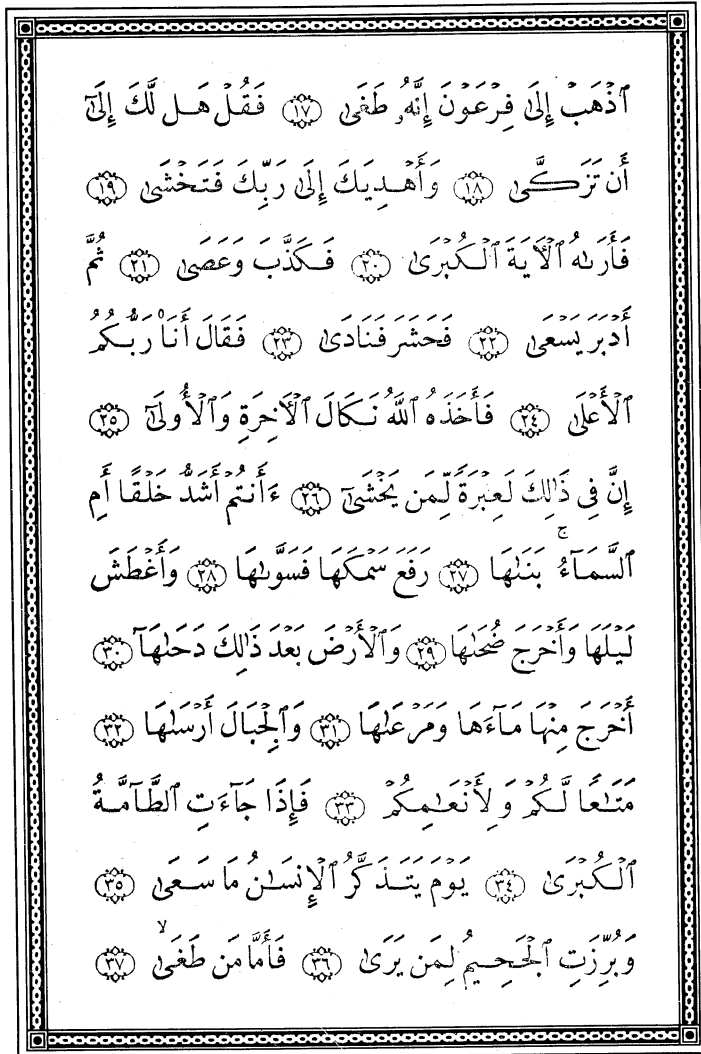 ٱذْهَبْ إِلَىٰ فِرْعَوْنَ إِنَّهُۥ طَغَىٰ ﴿١٧﴾ فَقُلْ هَل لَّكَ إِلَىٰٓ
أَن تَزَكَّىٰ ﴿١٨﴾ وَأَهْدِيَكَ إِلَىٰ رَبِّكَ فَتَخْشَىٰ ﴿١٩﴾
فَأَرَىٰهُ ٱلْأٓيَةَ ٱلْكُبْرَىٰ ﴿٢٠﴾ فَكَذَّبَ وَعَصَىٰ ﴿٢١﴾ ثُمَّ
أَدْبَرَ يَسْعَىٰ ﴿٢٢﴾ فَحَشَرَ فَنَادَىٰ ﴿٢٣﴾ فَقَالَ أَنَا۠ رَبُّكُمُ
ٱلْأَعْلَىٰ ﴿٢٤﴾ فَأَخَذَهُ ٱللَّهُ نَكَالَ ٱلْأٓخِرَةِ وَٱلْأُولَىٰٓ ﴿٢٥﴾
إِنَّ فِى ذَٰلِكَ لَعِبْرَةً لِّمَن يَخْشَىٰٓ ﴿٢٦﴾ ءَأَنتُمْ أَشَدُّ خَلْقًا أَمِ
ٱلسَّمَآءُ ۚ بَنَىٰهَا ﴿٢٧﴾ رَفَعَ سَمْكَهَا فَسَوَّىٰهَا ﴿٢٨﴾ وَأَغْطَشَ
لَيْلَهَا وَأَخْرَجَ ضُحَىٰهَا ﴿٢٩﴾ وَٱلْأَرْضَ بَعْدَ ذَٰلِكَ دَحَىٰهَآ ﴿٣٠﴾
أَخْرَجَ مِنْهَا مَآءَهَا وَمَرْعَىٰهَا ﴿٣١﴾ وَٱلْجِبَالَ أَرْسَىٰهَا ﴿٣٢﴾
مَتَٰعًا لَّكُمْ وَلِأَنْعَٰمِكُمْ ﴿٣٣﴾ فَإِذَا جَآءَتِ ٱلطَّآمَّةُ
ٱلْكُبْرَىٰ ﴿٣٤﴾ يَوْمَ يَتَذَكَّرُ ٱلْإِنسَٰنُ مَا سَعَىٰ ﴿٣٥﴾
وَبُرِّزَتِ ٱلْجَحِيمُ لِمَن يَرَىٰ ﴿٣٦﴾ فَأَمَّا مَن طَغَىٰ ۙ ﴿٣٧﴾